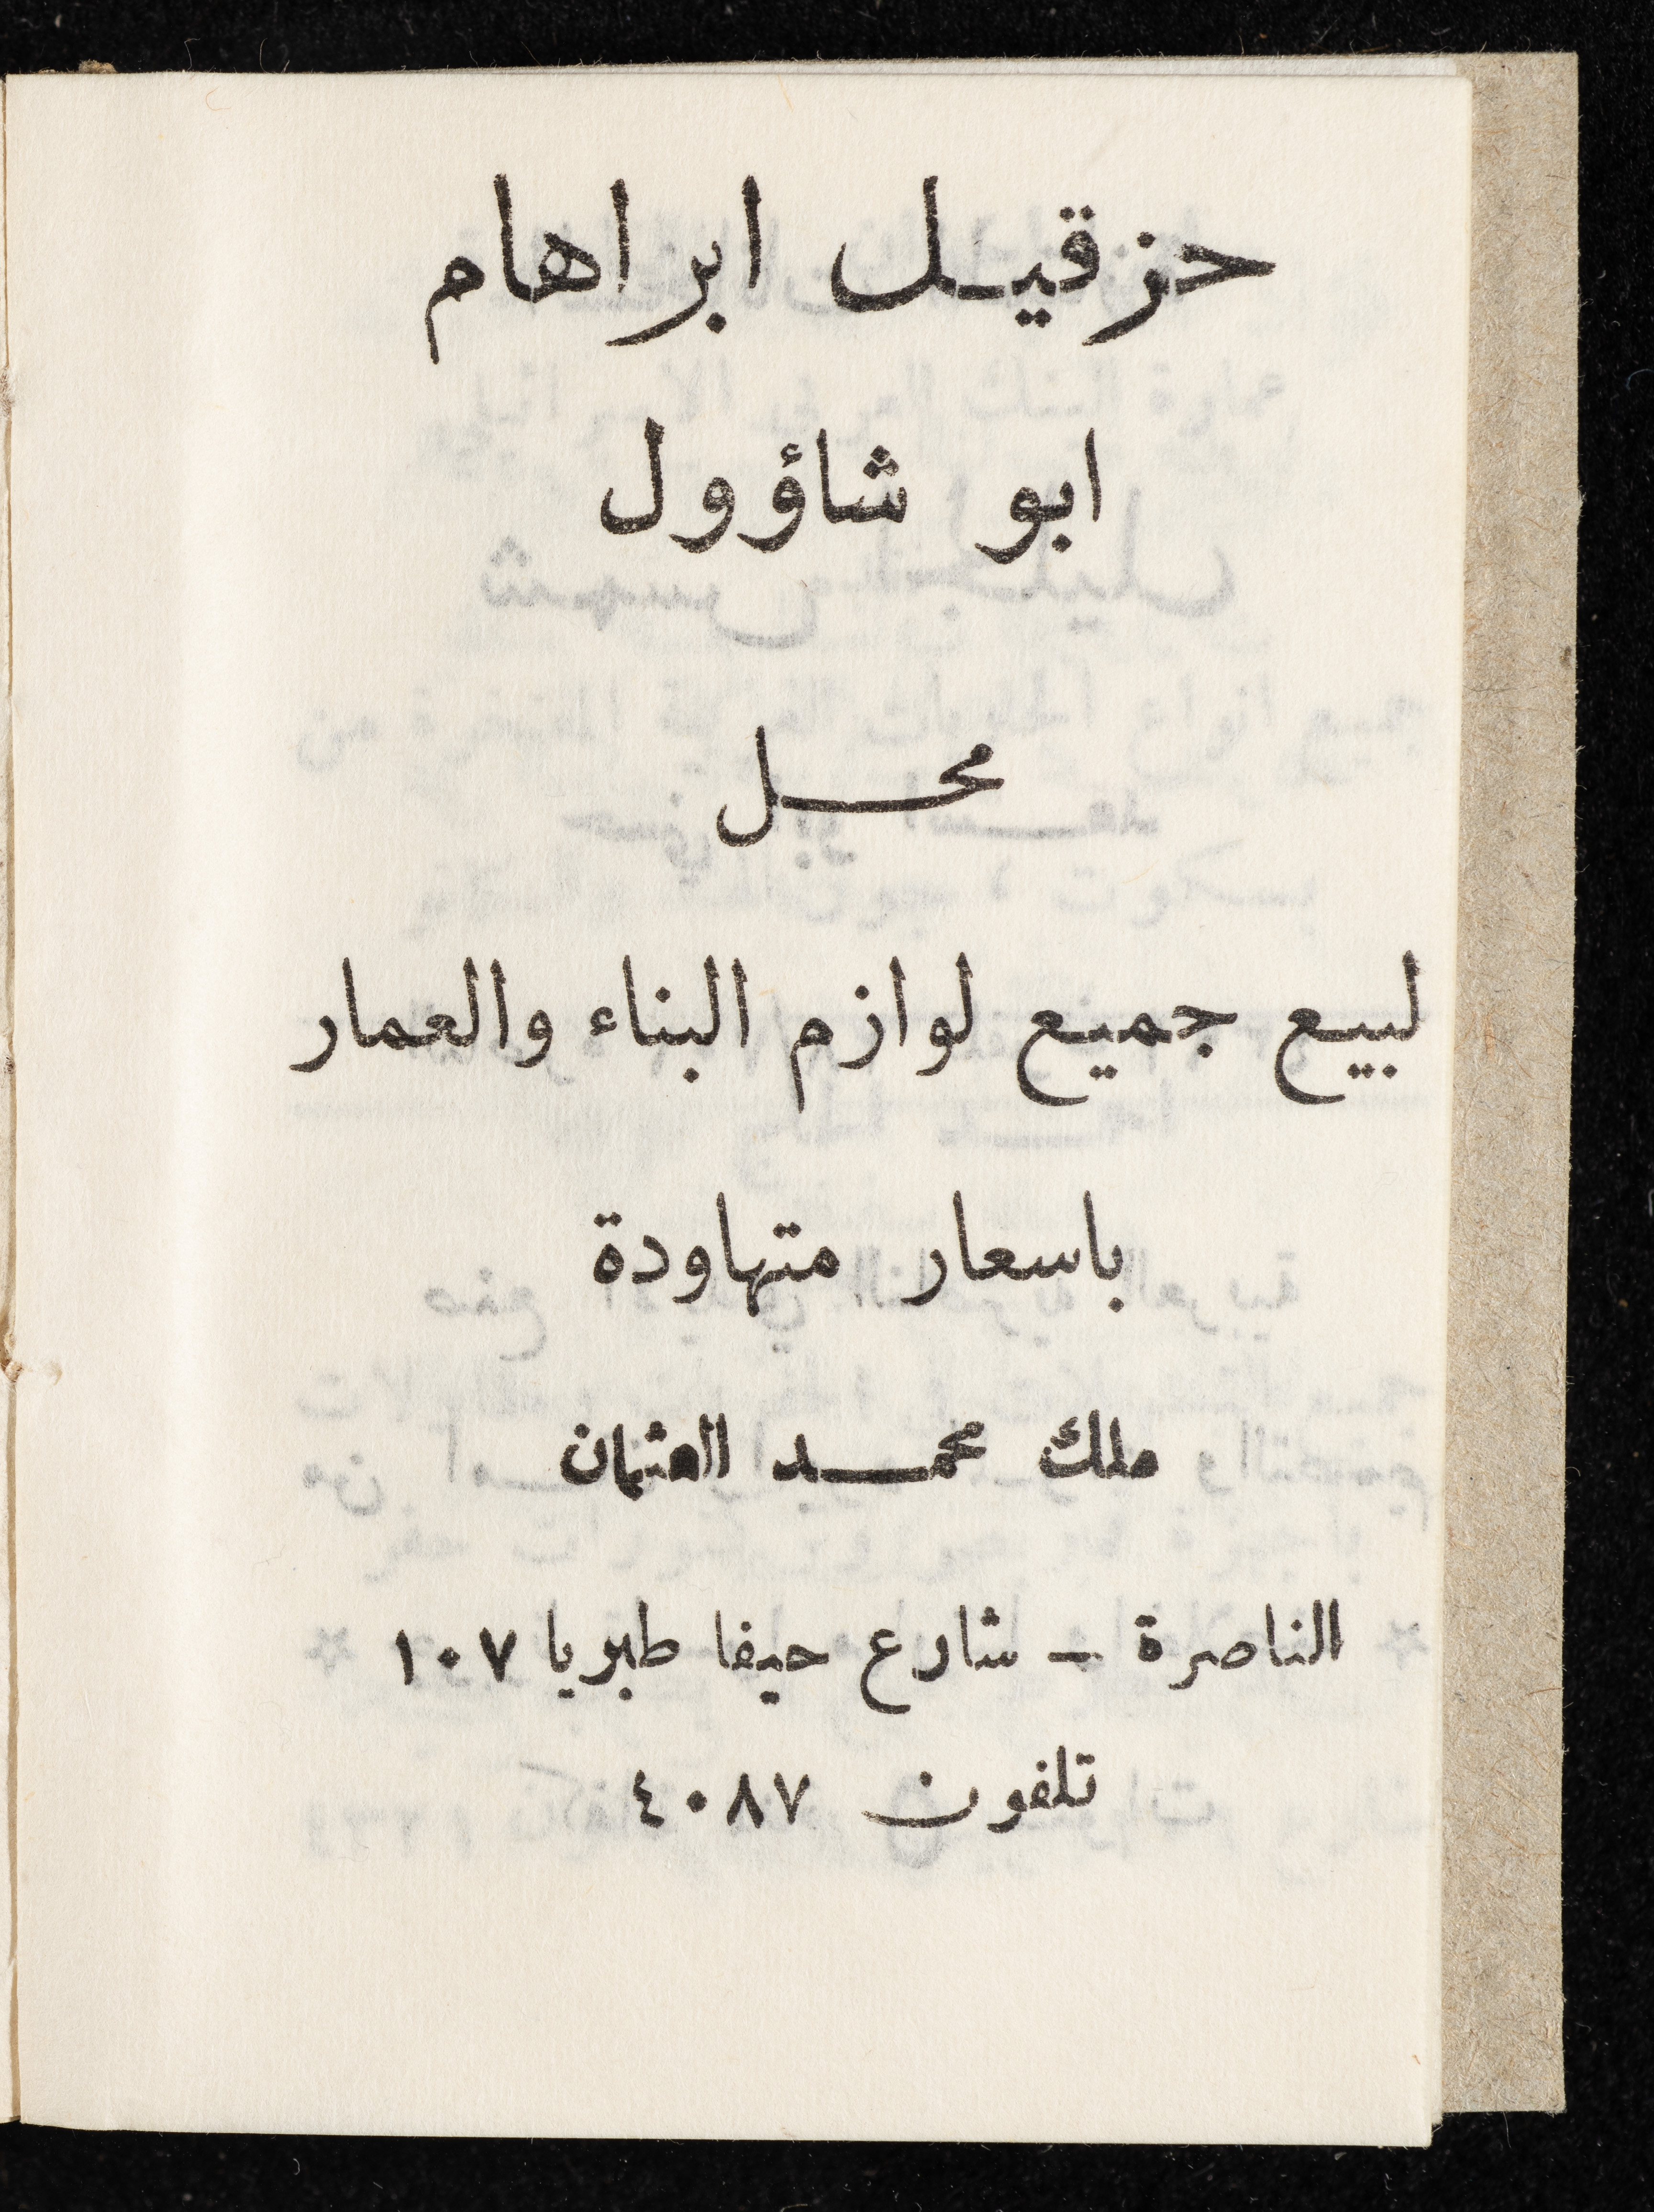 حزقيل ابراهام
ابو شاؤول
محل
لبيع جميع لوازم البناء والعمار
باسعار متهاودة
ملك محمد العثمان
الناصرة - شارع حيفا طبريا ١٠٧
تلفون ٤٠٨٧